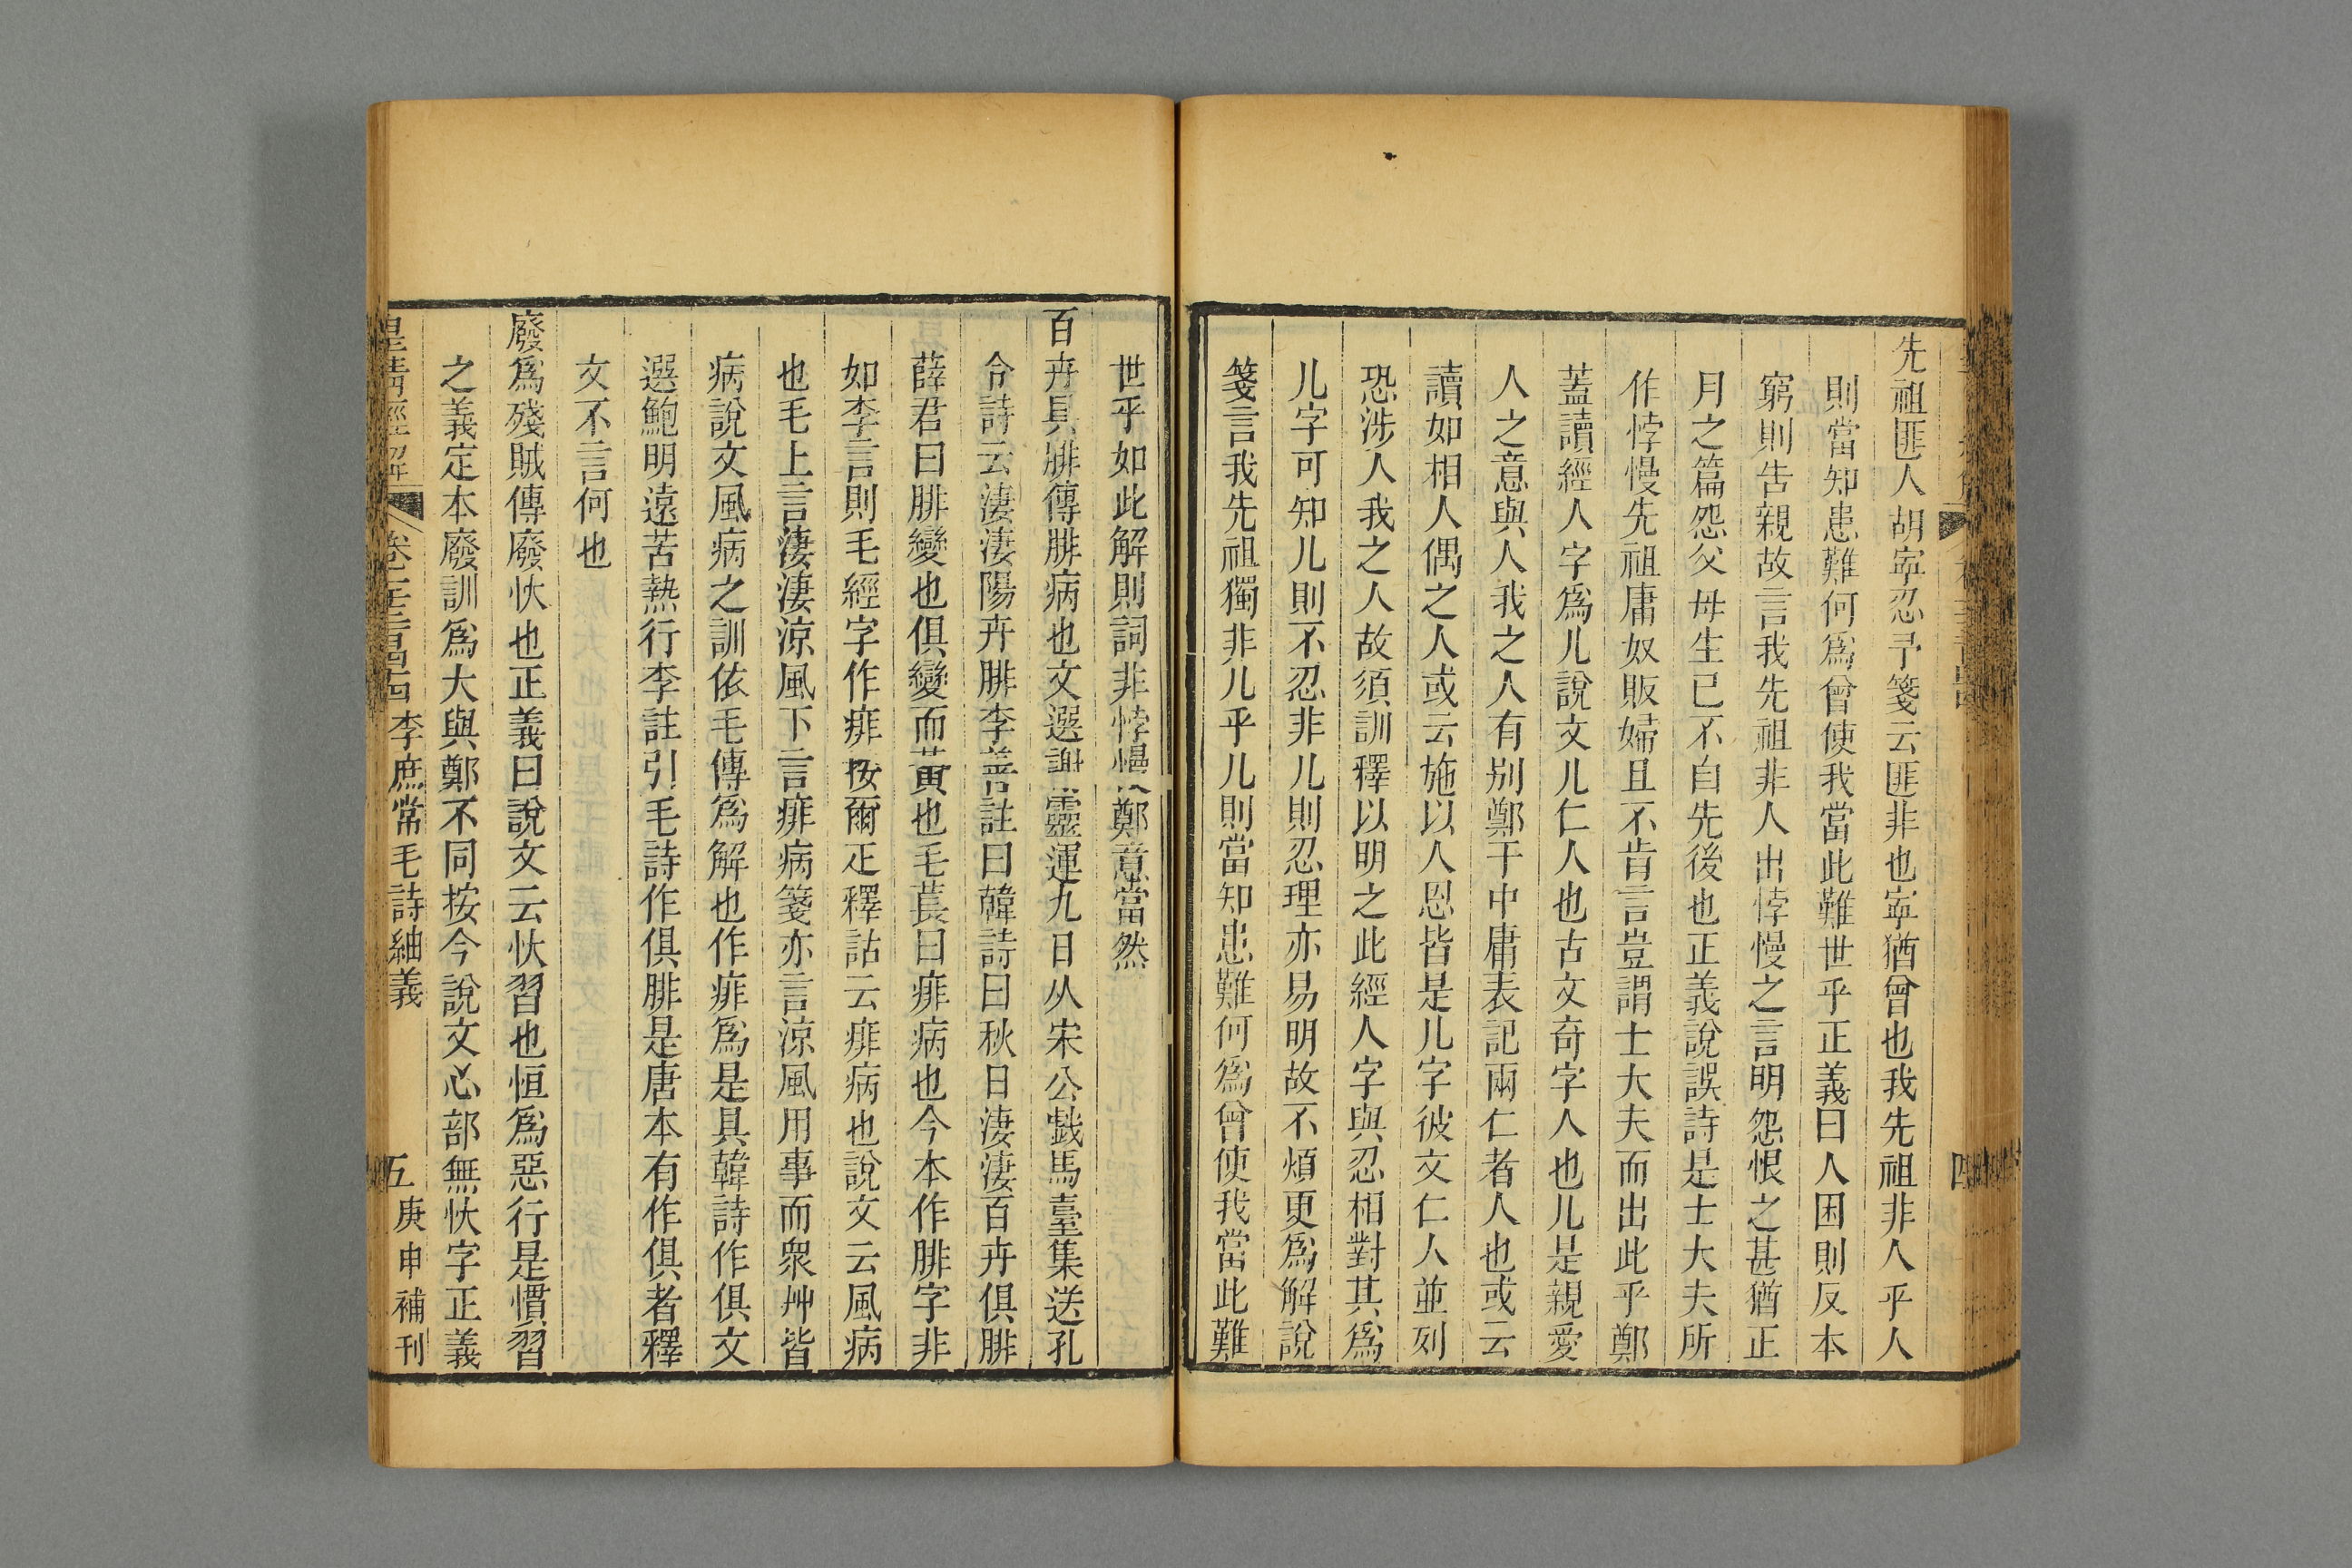 先祖匪人胡寧忍予箋云匪非也寧猶曾也我先祖非人乎人
則當知患難何爲曾使我當此難世乎正義曰人困則反本
窮則告親故言我先祖非人出悖慢之言明怨恨之甚猶正
月之篇怨父母生已不自先後也正義說誤詩是士大夫所
作悖慢先祖庸奴販婦且不肯言豈謂士大夫而出此乎鄭
蓋讀經人字爲儿說文儿仁人也古文奇字人也儿是親愛
人之意與人我之人有別鄭于中庸表記兩仁者人也或云
讀如相人偶之人或云施以人恩皆是儿字彼文仁人並列
恐涉人我之人故須訓釋以明之此經人字與忍相對其爲
儿字可知儿則不忍非儿則忍理亦易明故不煩更爲解說
箋言我先祖獨非儿乎儿則當知患難何爲曾使我當此難
世乎如此解則詞非悖慢鄭意當然
百卉具腓傳腓病也文選謝靈運九日从宋公戲馬臺集送孔
令詩云淒淒陽卉腓李善註曰韓詩曰秋日淒淒百卉俱腓
薛君曰腓變也俱變而黃也毛萇曰痱病也今本作腓字非
如李言則毛經字作痱按爾疋釋詁云痱病也說文云風病
也毛上言淒淒涼風下言痱病箋亦言涼風用事而衆艸皆
病說文風病之訓依毛傳爲解也作痱爲是具韓詩作俱文
選鮑明遠苦熱行李註引毛詩作俱腓是唐本有作俱者釋
文不言何也
廢爲殘賊傳廢忕也正義曰說文云忕習也恒爲惡行是慣習
之義定本廢訓爲大與鄭不同按今說文心部無忕字正義
皇清經解 卷一千三百四十四 李庶常毛詩紬義 五 庚申補刊